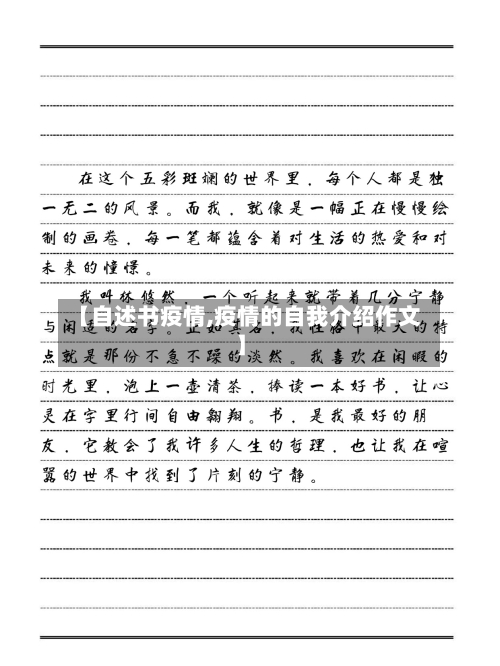 在这个五彩斑斓的世界里，每个人都是独
一无二的风景。而我，就像是一幅正在慢慢绘
制的画卷，每一笔都蕴含着对生活的热爱和对
未来的憧憬。
我叫林悠然，一个听起来就带着几分宁静
【自述书疫情,疫情的自我介绍作文
】
与闲适的名字。正如其名，我性格中最大的特
点就是那份不急不躁的淡然。我喜欢在闲暇的
时光里，泡上一壶清茶，捧读一本好书，让心
灵在字里行间自由翱翔。书，是我最好的朋
友，它教会了我许多人生的哲理，也让我在喧
嚣的世界中找到了片刻的宁静。